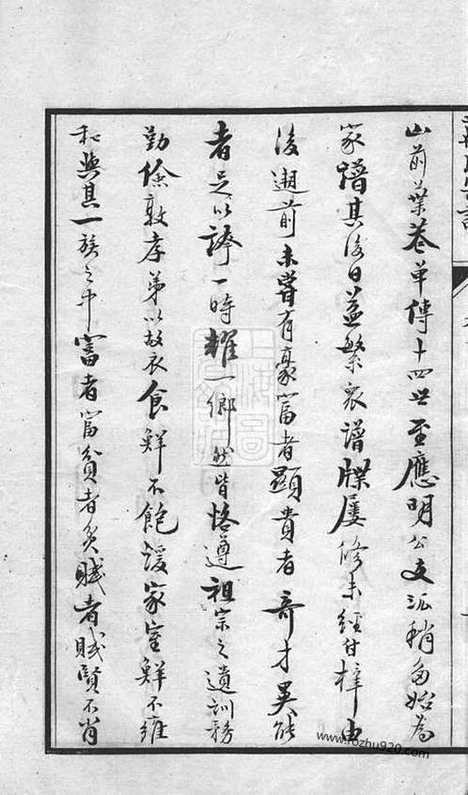 山前葉巷單傳十四世至應明公支派稍多始為
家譜其後日益繁衆譜牒屢修未經付梓由
後遡前未嘗有豪富者顯貴者奇才異能
者足以誇一時耀一鄉然皆恪遵祖宗之遺訓務
勤儉敦孝弟以故衣食鮮不飽煖家室鮮不雍
和與其一族之中富者富貧者貧賤者賤賢不肖
www.fozhu920.com